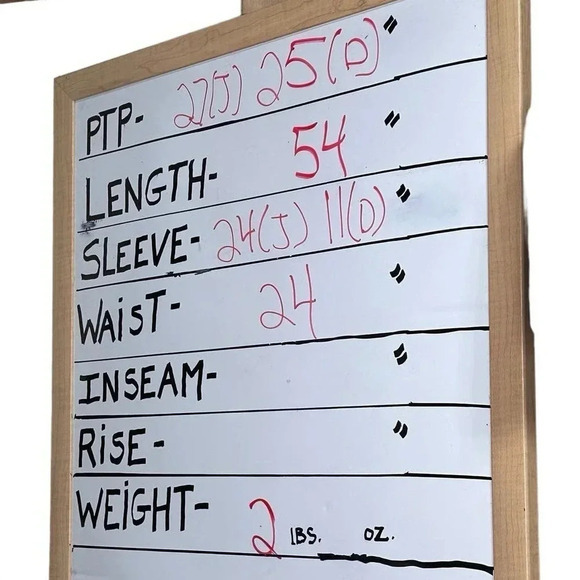 PTP- 27(J) 25(D)"
LENGTH- 54 "
SLEEVE- 24(J) 11(D) "
WAiST- 24 "
INSEAM- "
RiSE- "
WEiGHT- 2 LBS. OZ.